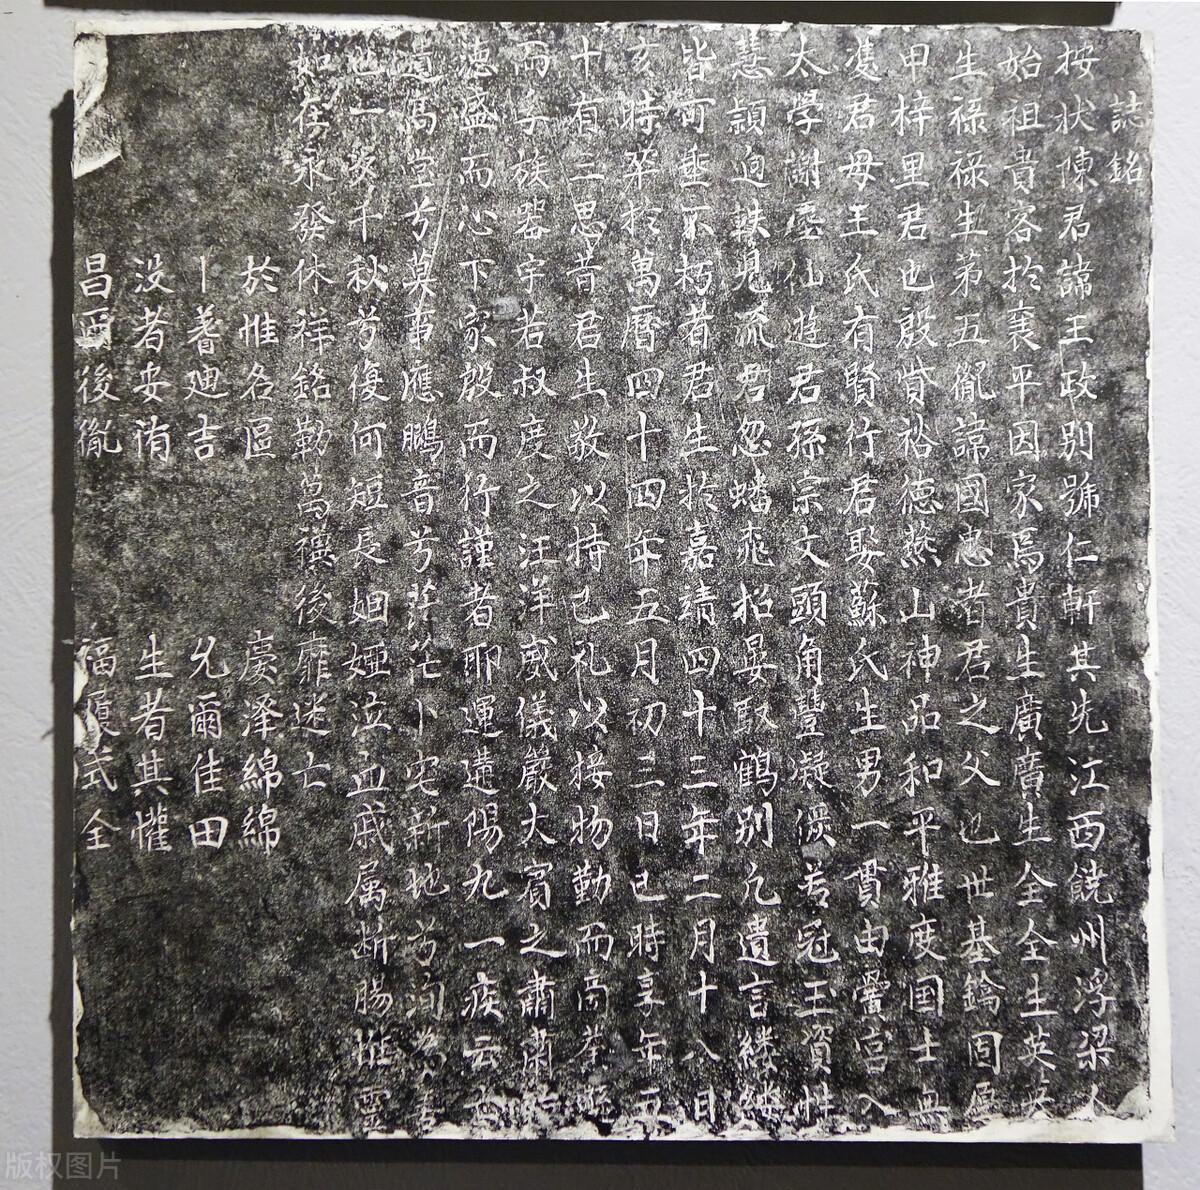 誌銘
按狀陳君諱王政別號仁軒其先江西饒州浮梁人
始祖貴客於襄平因家焉貴生廣廣生全全生英英
生祿祿生第五胤諱國忠者君之父也世基鎬固厚
甲梓里君也殷貲裕德燕山神品和平雅度国士無
雙君母王氏有賢行君娶蘇氏生男一貫由黌宮入
太學謝塵仙遊君孫宗文頭角豐凝儼若冠玉資性
慧穎適軼見流君忽蟠飛招晏馭鶴別凢遺言縷縷
皆可垂不朽者君生於嘉靖四十三年二月十八日
亥時卒於萬曆四十四年五月初三日巳時享年五
十有三思昔君生敬以持己礼以接物勤而商孝
而手族器宇若叔度之汪洋威儀嚴大賓之肅肅
德盛而心下家殷而行謹者耶運遘陽九一疾云
遺高堂兮莫事應鵬音兮茫茫卜宅新地兮洵
也一變千秋兮復何短長姻婭泣血戚属断腸惟靈
如在永發休祥銘勒萬禩後靡迷亡
於惟名區 慶澤綿綿
卜着廸吉 允爾佳田
没者安侑 生者其懽
昌爾後胤 福履式全
版权图片